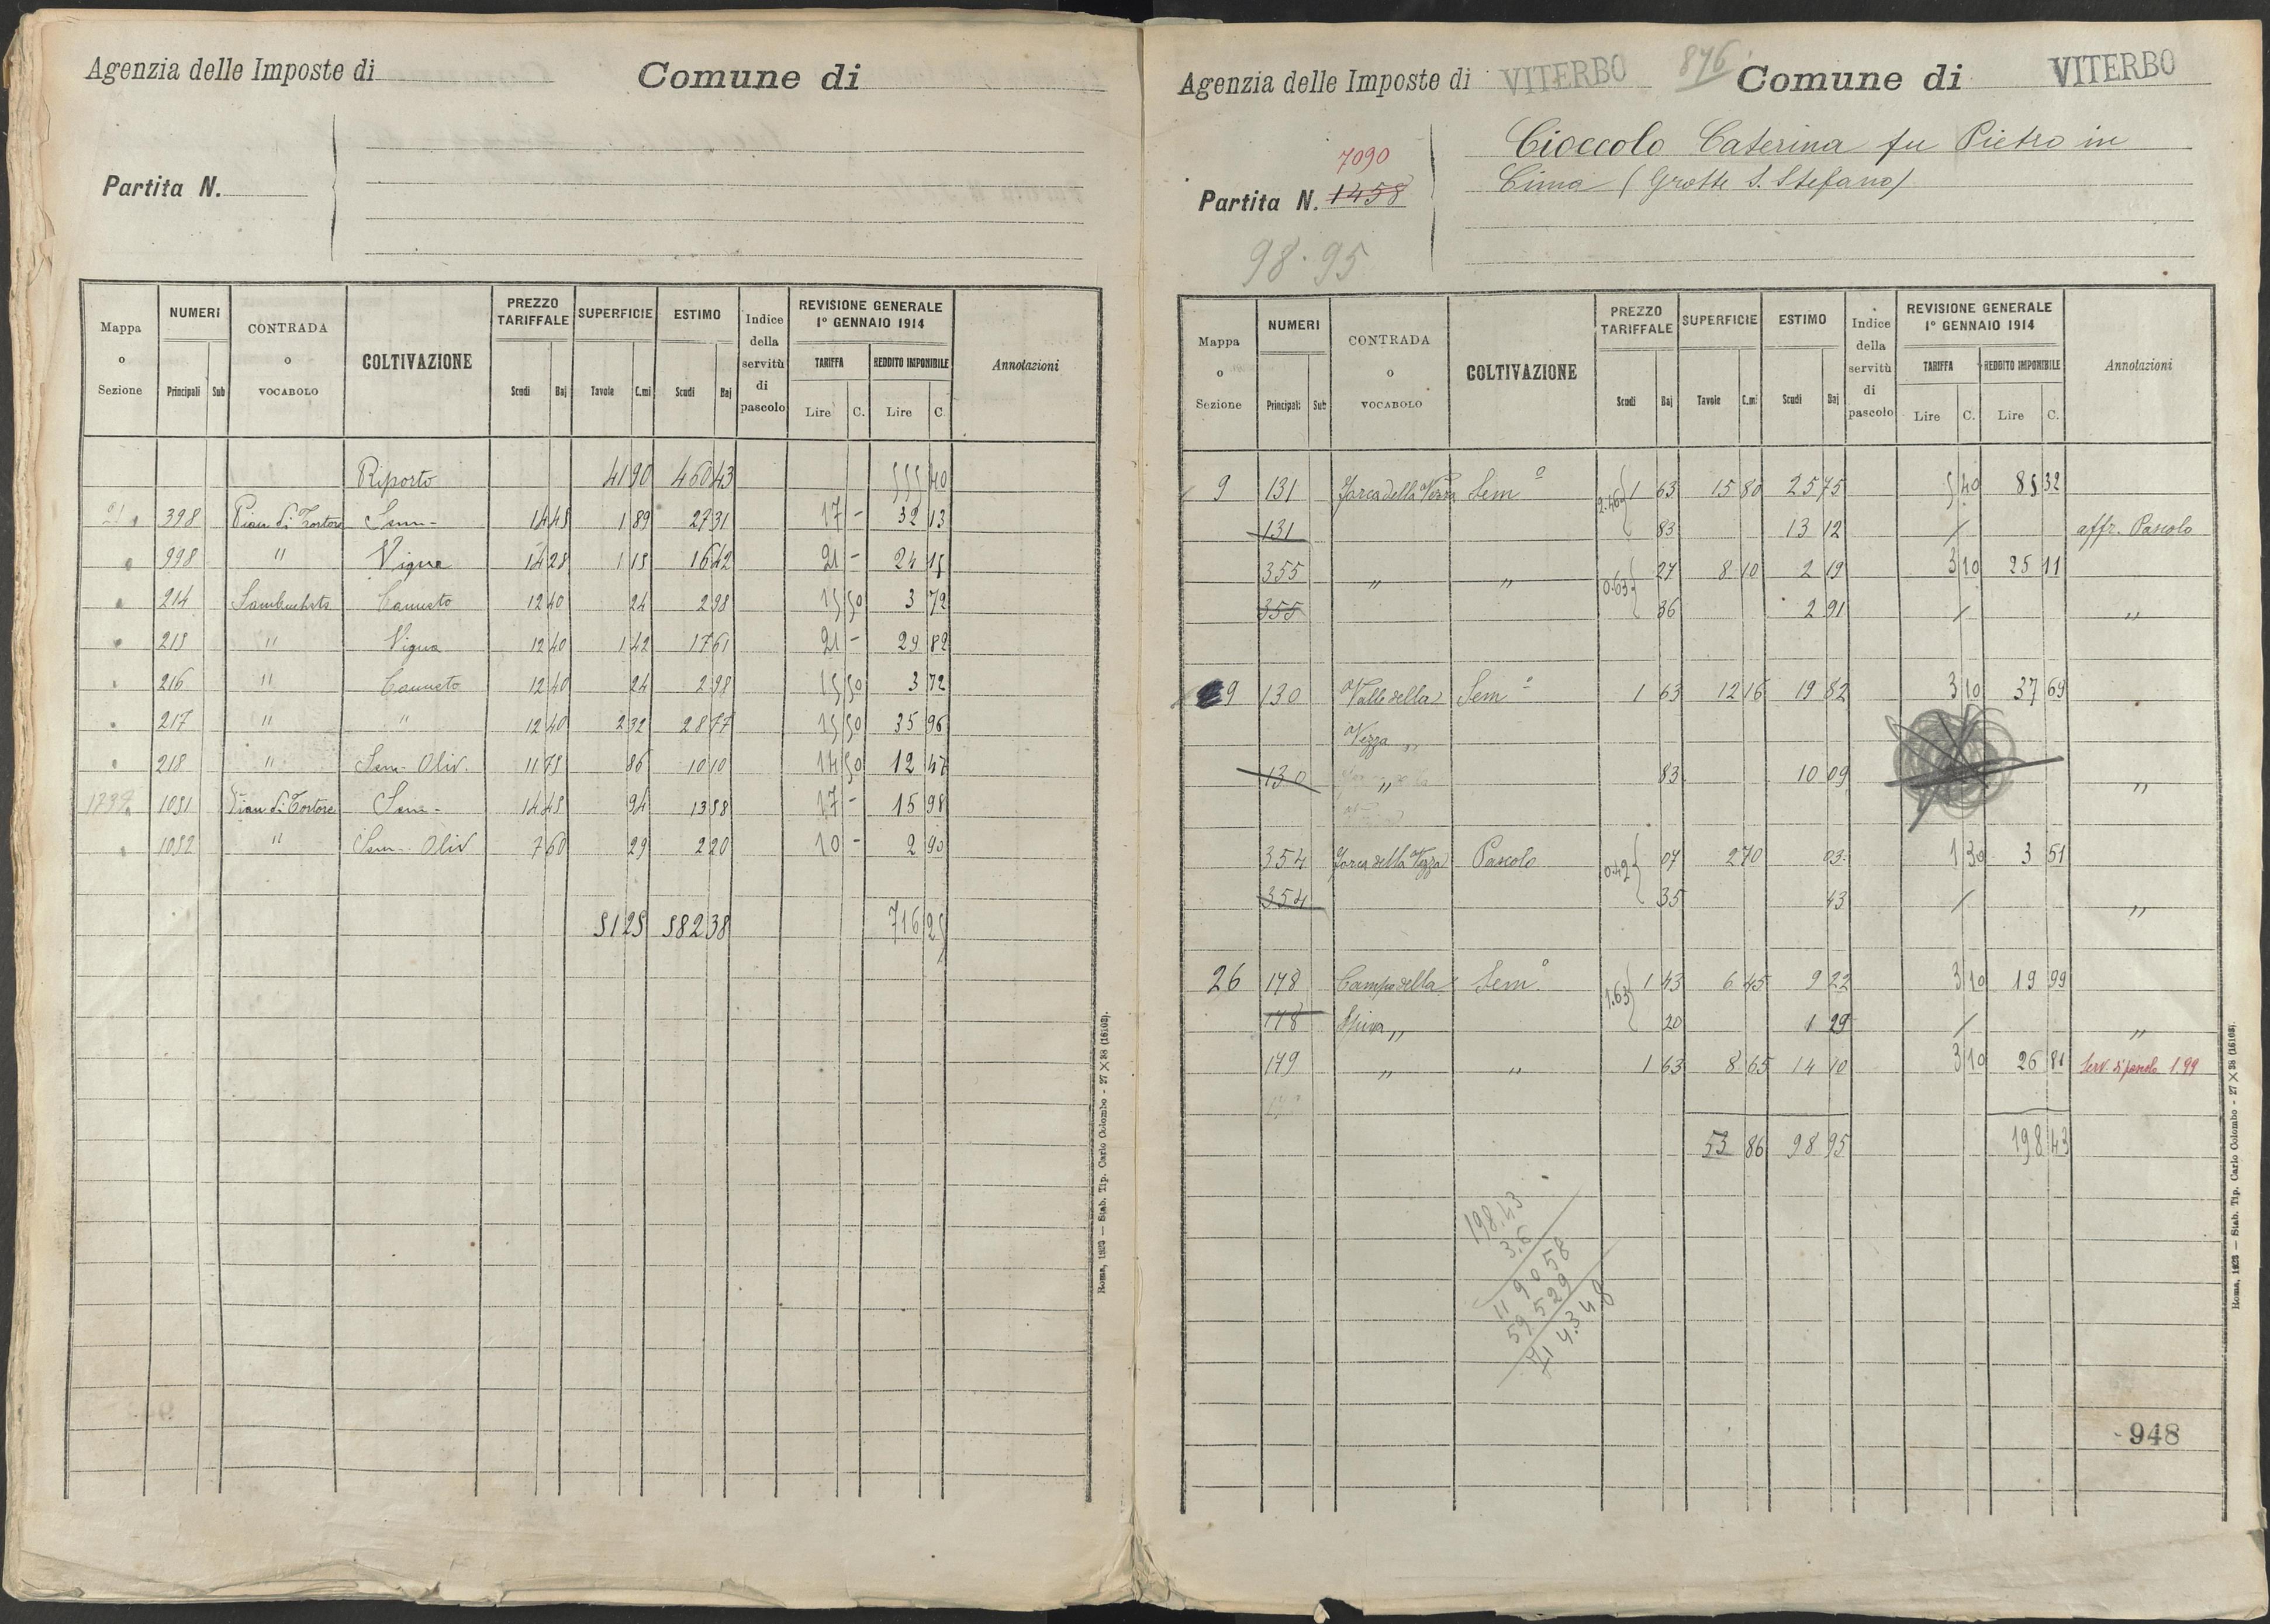 Agenzia delle Imposte di
Comune di
Partita N.
Mappa o Sezione | NUMERI Principali Sub | CONTRADA o VOCABOLO | COLTIVAZIONE | PREZZO TARIFFALE Scudi Baj | SUPERFICIE Tavole C.mi | ESTIMO Scudi Baj | Indice della servitù di pascolo | REVISIONE GENERALE 1° GENNAIO 1914 TARIFFA Lire C. REDDITO IMPONIBILE Lire C. | Annotazioni
Riporto 41 90 460 43 555 40
21 398 Pian di Tortore Sem- 14 45 1 89 27 31 17 - 32 13
998 " Vigna 14 28 1 15 16 42 21 - 24 15
214 Canneto 12 40 24 2 98 15 50 3 72
215 " Vigna 12 40 1 42 17 61 21 - 29 82
216 " Canneto 12 40 24 2 98 15 50 3 72
217 " " 12 40 2 32 28 77 15 50 35 96
218 " Sem- Oliv. 11 75 86 10 10 14 50 12 47
1051 Pian di Tortore Sem- 14 45 94 13 58 17 - 15 98
1052 " Sem- Oliv 7 60 29 2 20 10 - 2 90
51 25 582 38 716 25
Roma, 1923 — Stab. Tip. Carlo Colombo - 27 X 38 (16103).
Agenzia delle Imposte di VITERBO 876 Comune di VITERBO
Cioccolo Caterina fu Pietro in
Cima (Grotte S. Stefano)
7090
Partita N. 1458
98.95
Mappa o Sezione | NUMERI Principali Sub | CONTRADA o VOCABOLO | COLTIVAZIONE | PREZZO TARIFFALE Scudi Baj | SUPERFICIE Tavole C.mi | ESTIMO Scudi Baj | Indice della servitù di pascolo | REVISIONE GENERALE 1° GENNAIO 1914 TARIFFA Lire C. REDDITO IMPONIBILE Lire C. | Annotazioni
9 131 della Vezza Sem° 2.46 1 63 15 80 25 75 5 40 85 32
131 83 13 12 / affr. Pascolo
355 " " 0.63 27 8 10 2 19 3 10 25 11
355 36 2 91 / "
9 130 Valle della Sem° 1 63 12 16 19 82 3 10 37 69
Vezza "
130 " 83 10 09 "
354 della Vezza Pascolo 0.42 07 2 70 03 1 30 3 51
354 35 43 / "
26 178 Campo della Sem° 1.63 1 43 6 45 9 22 3 10 19 99
178 Spina " 20 1 29 / "
179 " " 1 63 8 65 14 10 3 10 26 81 Serv. di pascolo 1.99
53 86 98 95 198 43
198.43
3.6
11 9 0 58
59 5 29
71 4.3 4 8
948
Roma, 1923 — Stab. Tip. Carlo Colombo - 27 X 38 (16103).